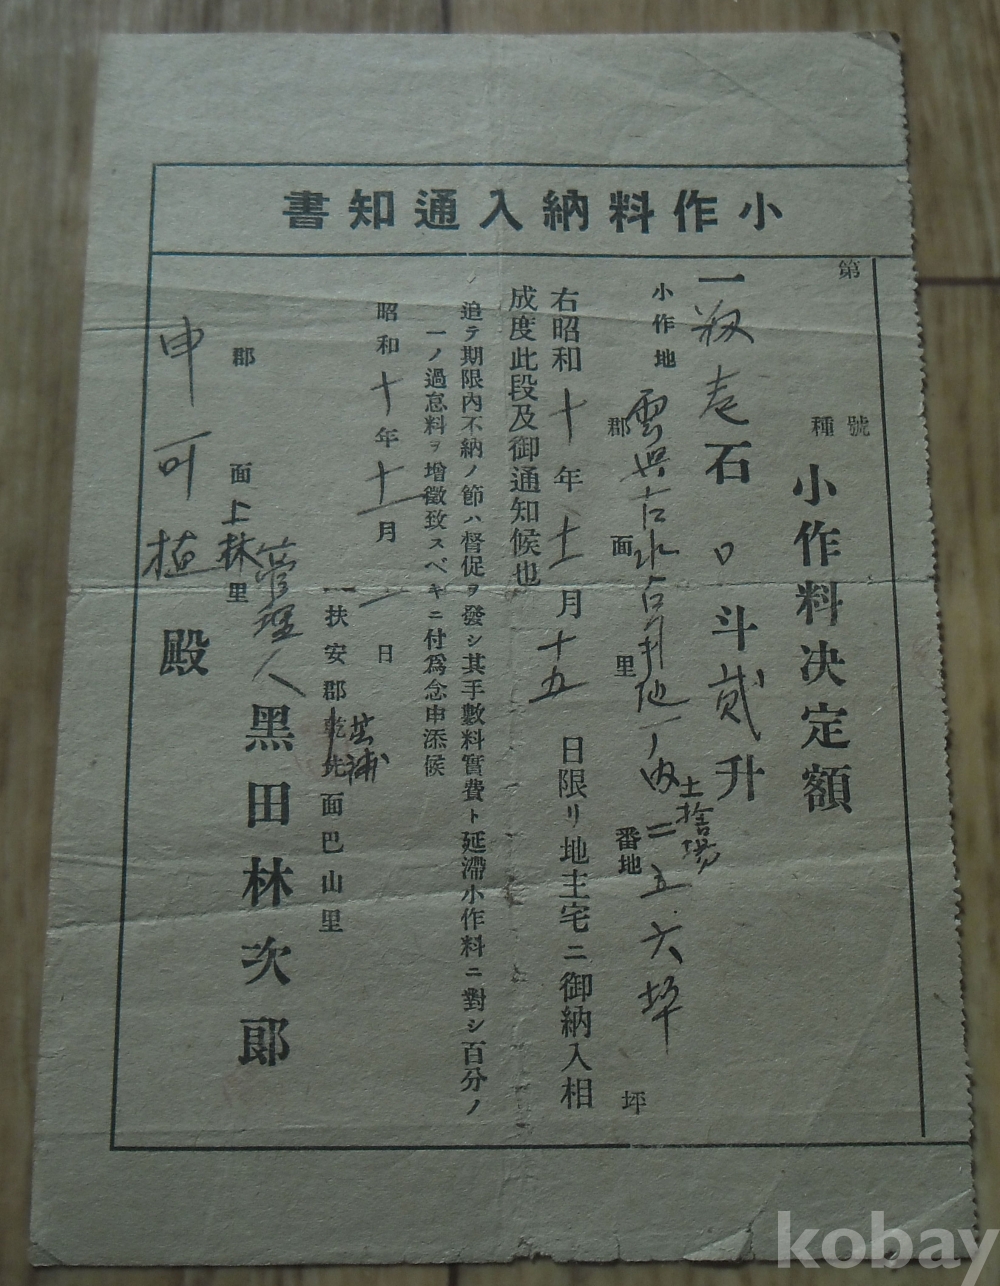 小作料納入通知書
第　　　號
種　小作料決定額
一籾壱石口斗貳升
土捨場
小作地　郡　面　里　番地　坪
古水古引地ノ内二五六坪
右昭和十年十二月十五日限リ地主宅ニ御納入相
成度此段及御通知候也
追テ期限內不納ノ節ハ督促ヲ發シ其手數料實費ト延滯小作料ニ對シ百分ノ
一ノ過怠料ヲ增徵致スベキニ付爲念申添候
昭和十年十一月一日
扶安郡乾先面巴山里
管理人黑田林次郎
郡　面上林里
申可植殿
kobay